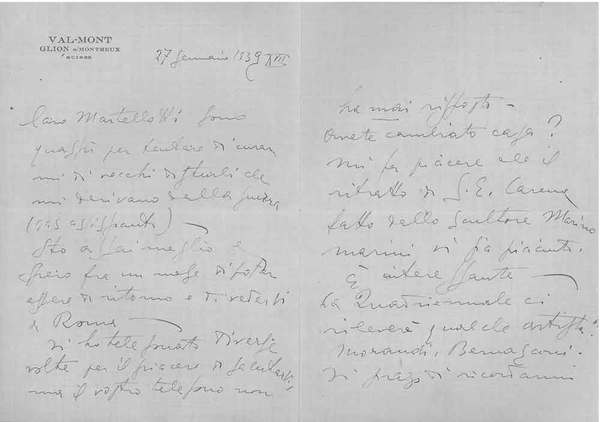 VAL-MONT
GLION s/MONTREUX
SUISSE
27 gennaio 1939 XVII
Caro Martellotti sono
quassù per tentare di curar
mi di vecchi disturbi che
mi derivano dalla guerra
(gas asfissianti) —
Sto assai meglio e
spero fra un mese di poter
essere di ritorno e di vedervi
a Roma —
Vi ho telefonato diverse
volte per il piacere di salutarvi,
ma il vostro telefono non
ha mai risposto —
Avete cambiato casa?
Mi fa piacere che il
ritratto di S.E. Carena
fatto dallo scultore Marino
Marini vi sia piaciuto.
È interessante —
La Quadriennale ci
rileverà qualche artista?
Morandi, Bernasconi.
Vi prego di ricordarmi